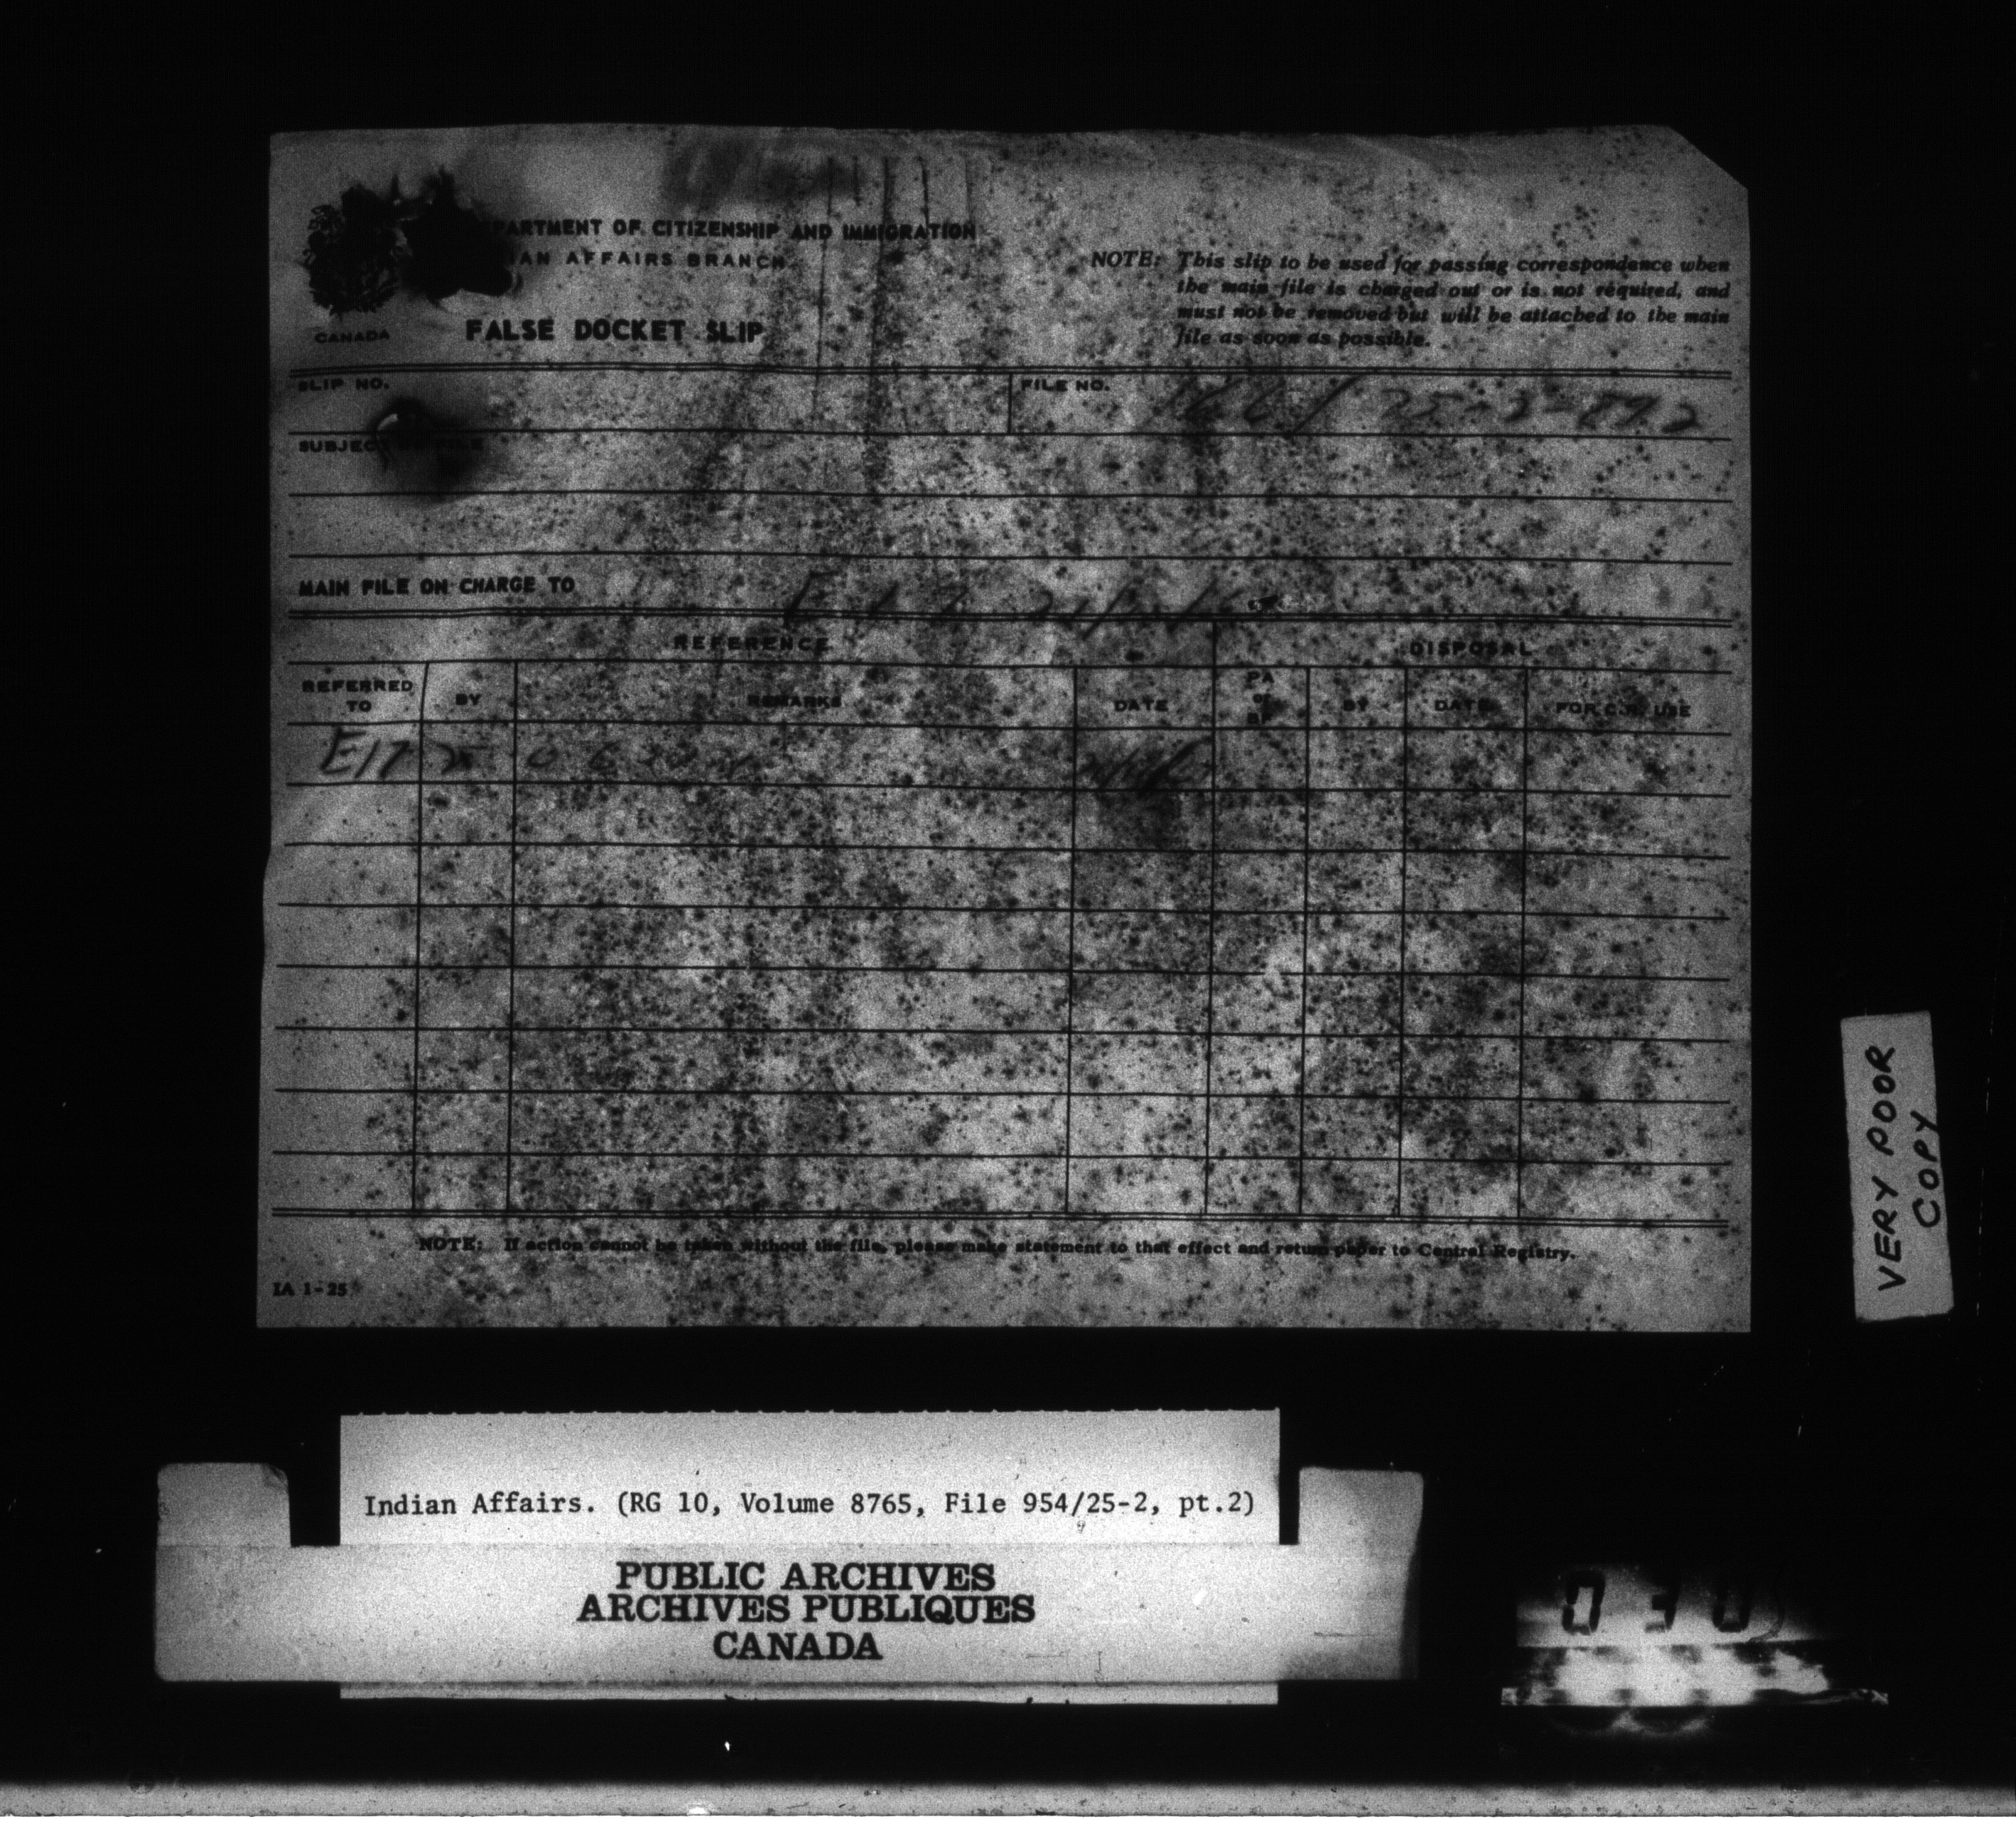 PARTMENT OF CITIZENSHIP AND IMMIGRATION
IAN AFFAIRS BRANCH
CANADA
FALSE DOCKET SLIP
NOTE: This slip to be used for passing correspondence when
the main file is charged out or is not required, and
must not be removed but will be attached to the main
file as soon as possible.
SLIP NO.
FILE NO.
SUBJECT FILE
MAIN FILE ON CHARGE TO
REFERENCE
DISPOSAL
REFERRED TO
BY
REMARKS
DATE
PA or BF
BY
DATE
FOR C.R. USE
E17
NOTE: If action cannot be taken without the file, please make statement to that effect and return paper to Central Registry.
IA 1-25
VERY POOR
COPY
Indian Affairs. (RG 10, Volume 8765, File 954/25-2, pt.2)
PUBLIC ARCHIVES
ARCHIVES PUBLIQUES
CANADA